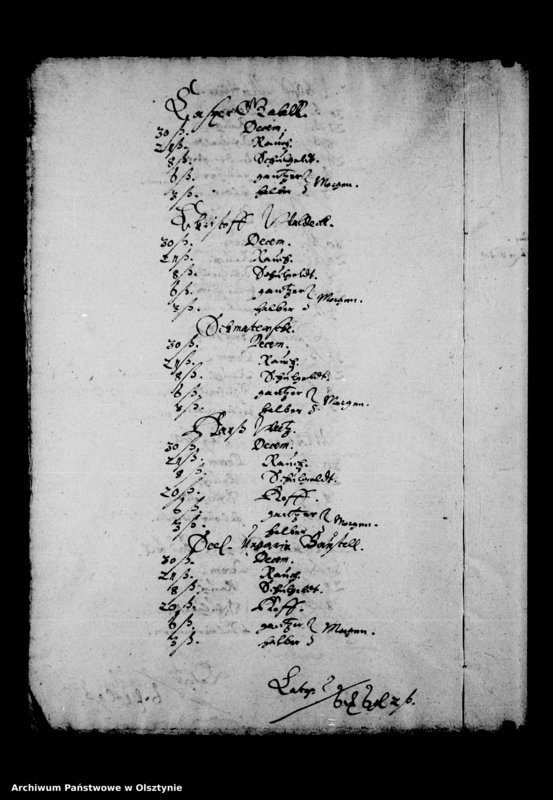 Casper
30 ß. Decem.
24 ß. Rauch.
8 ß. Schulgeldt.
6 ß. gantzer } Morgen.
3 ß. halber
Christoff
30 ß. Decem.
24 ß. Rauch.
8 ß. Schulgeldt.
6 ß. gantzer } Morgen.
3 ß. halber
30 ß. Decem.
24 ß. Rauch.
8 ß. Schulgeldt.
6 ß. gantzer } Morgen.
3 ß. halber
30 ß. Decem.
24 ß. Rauch.
8 ß. Schulgeldt.
20 ß.
6 ß. gantzer } Morgen.
3 ß. halber
30 ß. Decem.
24 ß. Rauch.
8 ß. Schulgeldt.
20 ß.
6 ß. gantzer } Morgen.
3 ß. halber
Latus
Archiwum Państwowe w Olsztynie